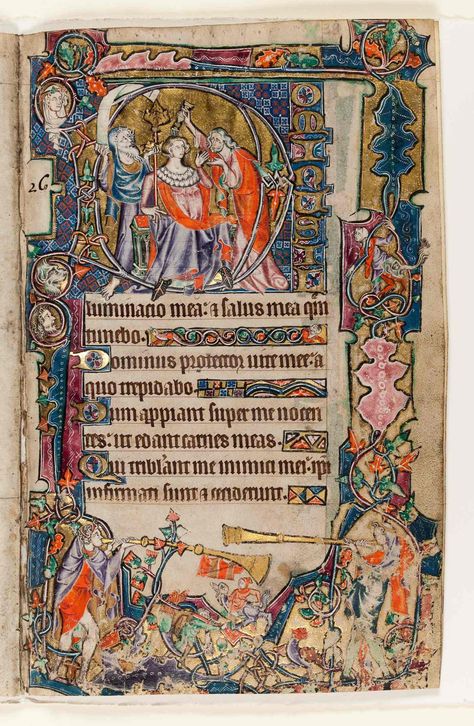 26
luminacio mea: & salus mea quē
timebo.
Dominus protector uite mee: a
quo trepidabo
Dum appiant super me nocen
tes: ut edant carnes meas.
Qui tribĺant me inimici mei: ipi
infirmati sunt & ceciderunt.